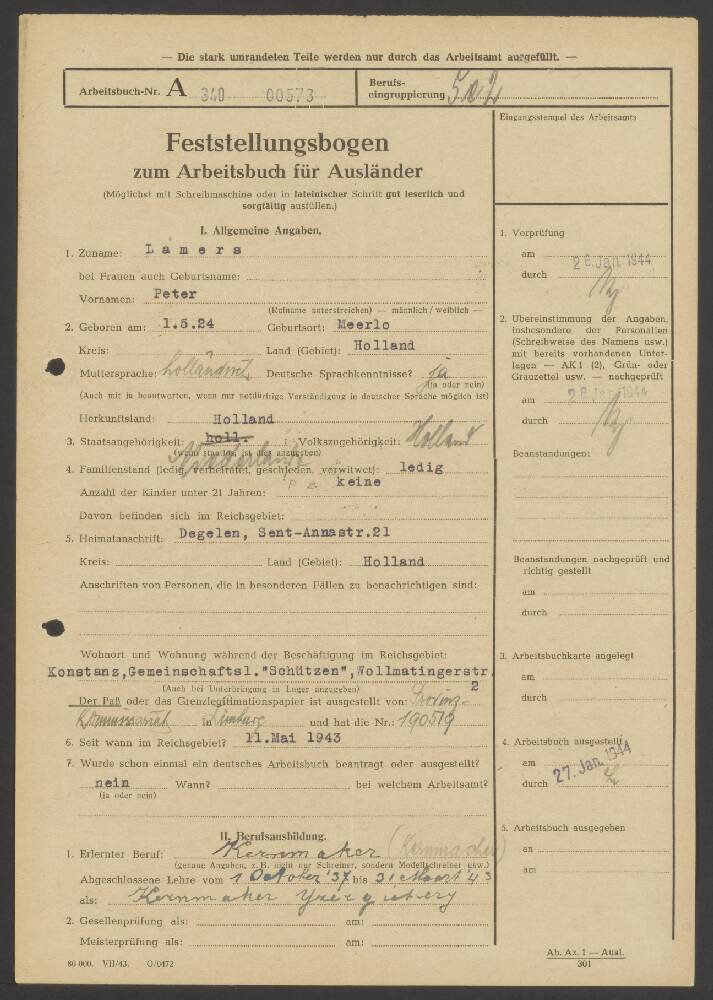 — Die stark umrandeten Teile werden nur durch das Arbeitsamt ausgefüllt. —
Arbeitsbuch-Nr. A 340 00573
Berufs-
eingruppierung
Eingangsstempel des Arbeitsamts
Feststellungsbogen
zum Arbeitsbuch für Ausländer
(Möglichst mit Schreibmaschine oder in lateinischer Schrift gut leserlich und
sorgfältig ausfüllen.)
I. Allgemeine Angaben.
1. Zuname: Lamers
bei Frauen auch Geburtsname:
Vornamen: Peter
(Rufname unterstreichen) — männlich / weiblich —
2. Geboren am: 1.5.24 Geburtsort: Meerlo
Kreis: Land (Gebiet): Holland
Muttersprache: holländisch Deutsche Sprachkenntnisse? ja
(ja oder nein)
(Auch mit ja beantworten, wenn nur notdürftige Verständigung in deutscher Sprache möglich ist)
Herkunftsland: Holland
3. Staatsangehörigkeit: holl. Volkszugehörigkeit: Holland
(wenn staatlos, ist dies anzugeben)
Niederlande
4. Familienstand (ledig, verheiratet, geschieden, verwitwet): ledig
Anzahl der Kinder unter 21 Jahren: keine
Davon befinden sich im Reichsgebiet:
5. Heimatanschrift: Degelen, Sent-Annastr.21
Kreis: Land (Gebiet): Holland
Anschriften von Personen, die in besonderen Fällen zu benachrichtigen sind:
Wohnort und Wohnung während der Beschäftigung im Reichsgebiet:
Konstanz,Gemeinschaftsl."Schützen",Wollmatingerstr.
2
(Auch bei Unterbringung in Lager anzugeben)
Der Paß oder das Grenzlegitimationspapier ist ausgestellt von: Provinz-
Kommissariat in Limburg und hat die Nr.: 190519
6. Seit wann im Reichsgebiet? 11.Mai 1943
7. Wurde schon einmal ein deutsches Arbeitsbuch beantragt oder ausgestellt?
nein Wann? bei welchem Arbeitsamt?
(ja oder nein)
II. Berufsausbildung.
1. Erlernter Beruf: Kernmaker (Kernmacher)
(genaue Angaben, z.B. nicht nur Schreiner, sondern Modellschreiner usw.)
Abgeschlossene Lehre vom 1 October '37 bis 31 Maart 43
als: Kernmaker
2. Gesellenprüfung als: am:
Meisterprüfung als: am:
80 000. VII/43. O/0472
1. Vorprüfung
am 26. Jan. 1944
durch
2. Übereinstimmung der Angaben,
insbesondere der Personalien
(Schreibweise des Namens usw.)
mit bereits vorhandenen Unter-
lagen — AK 1 (2), Grün- oder
Grauzettel usw. — nachgeprüft
am 26. Jan. 1944
durch
Beanstandungen:
Beanstandungen nachgeprüft und
richtig gestellt
am
durch
3. Arbeitsbuchkarte angelegt
am
durch
4. Arbeitsbuch ausgestellt
am 27. Jan. 1944
durch
5. Arbeitsbuch ausgegeben
an
am
Ab. Az. 1 — Ausl.
301